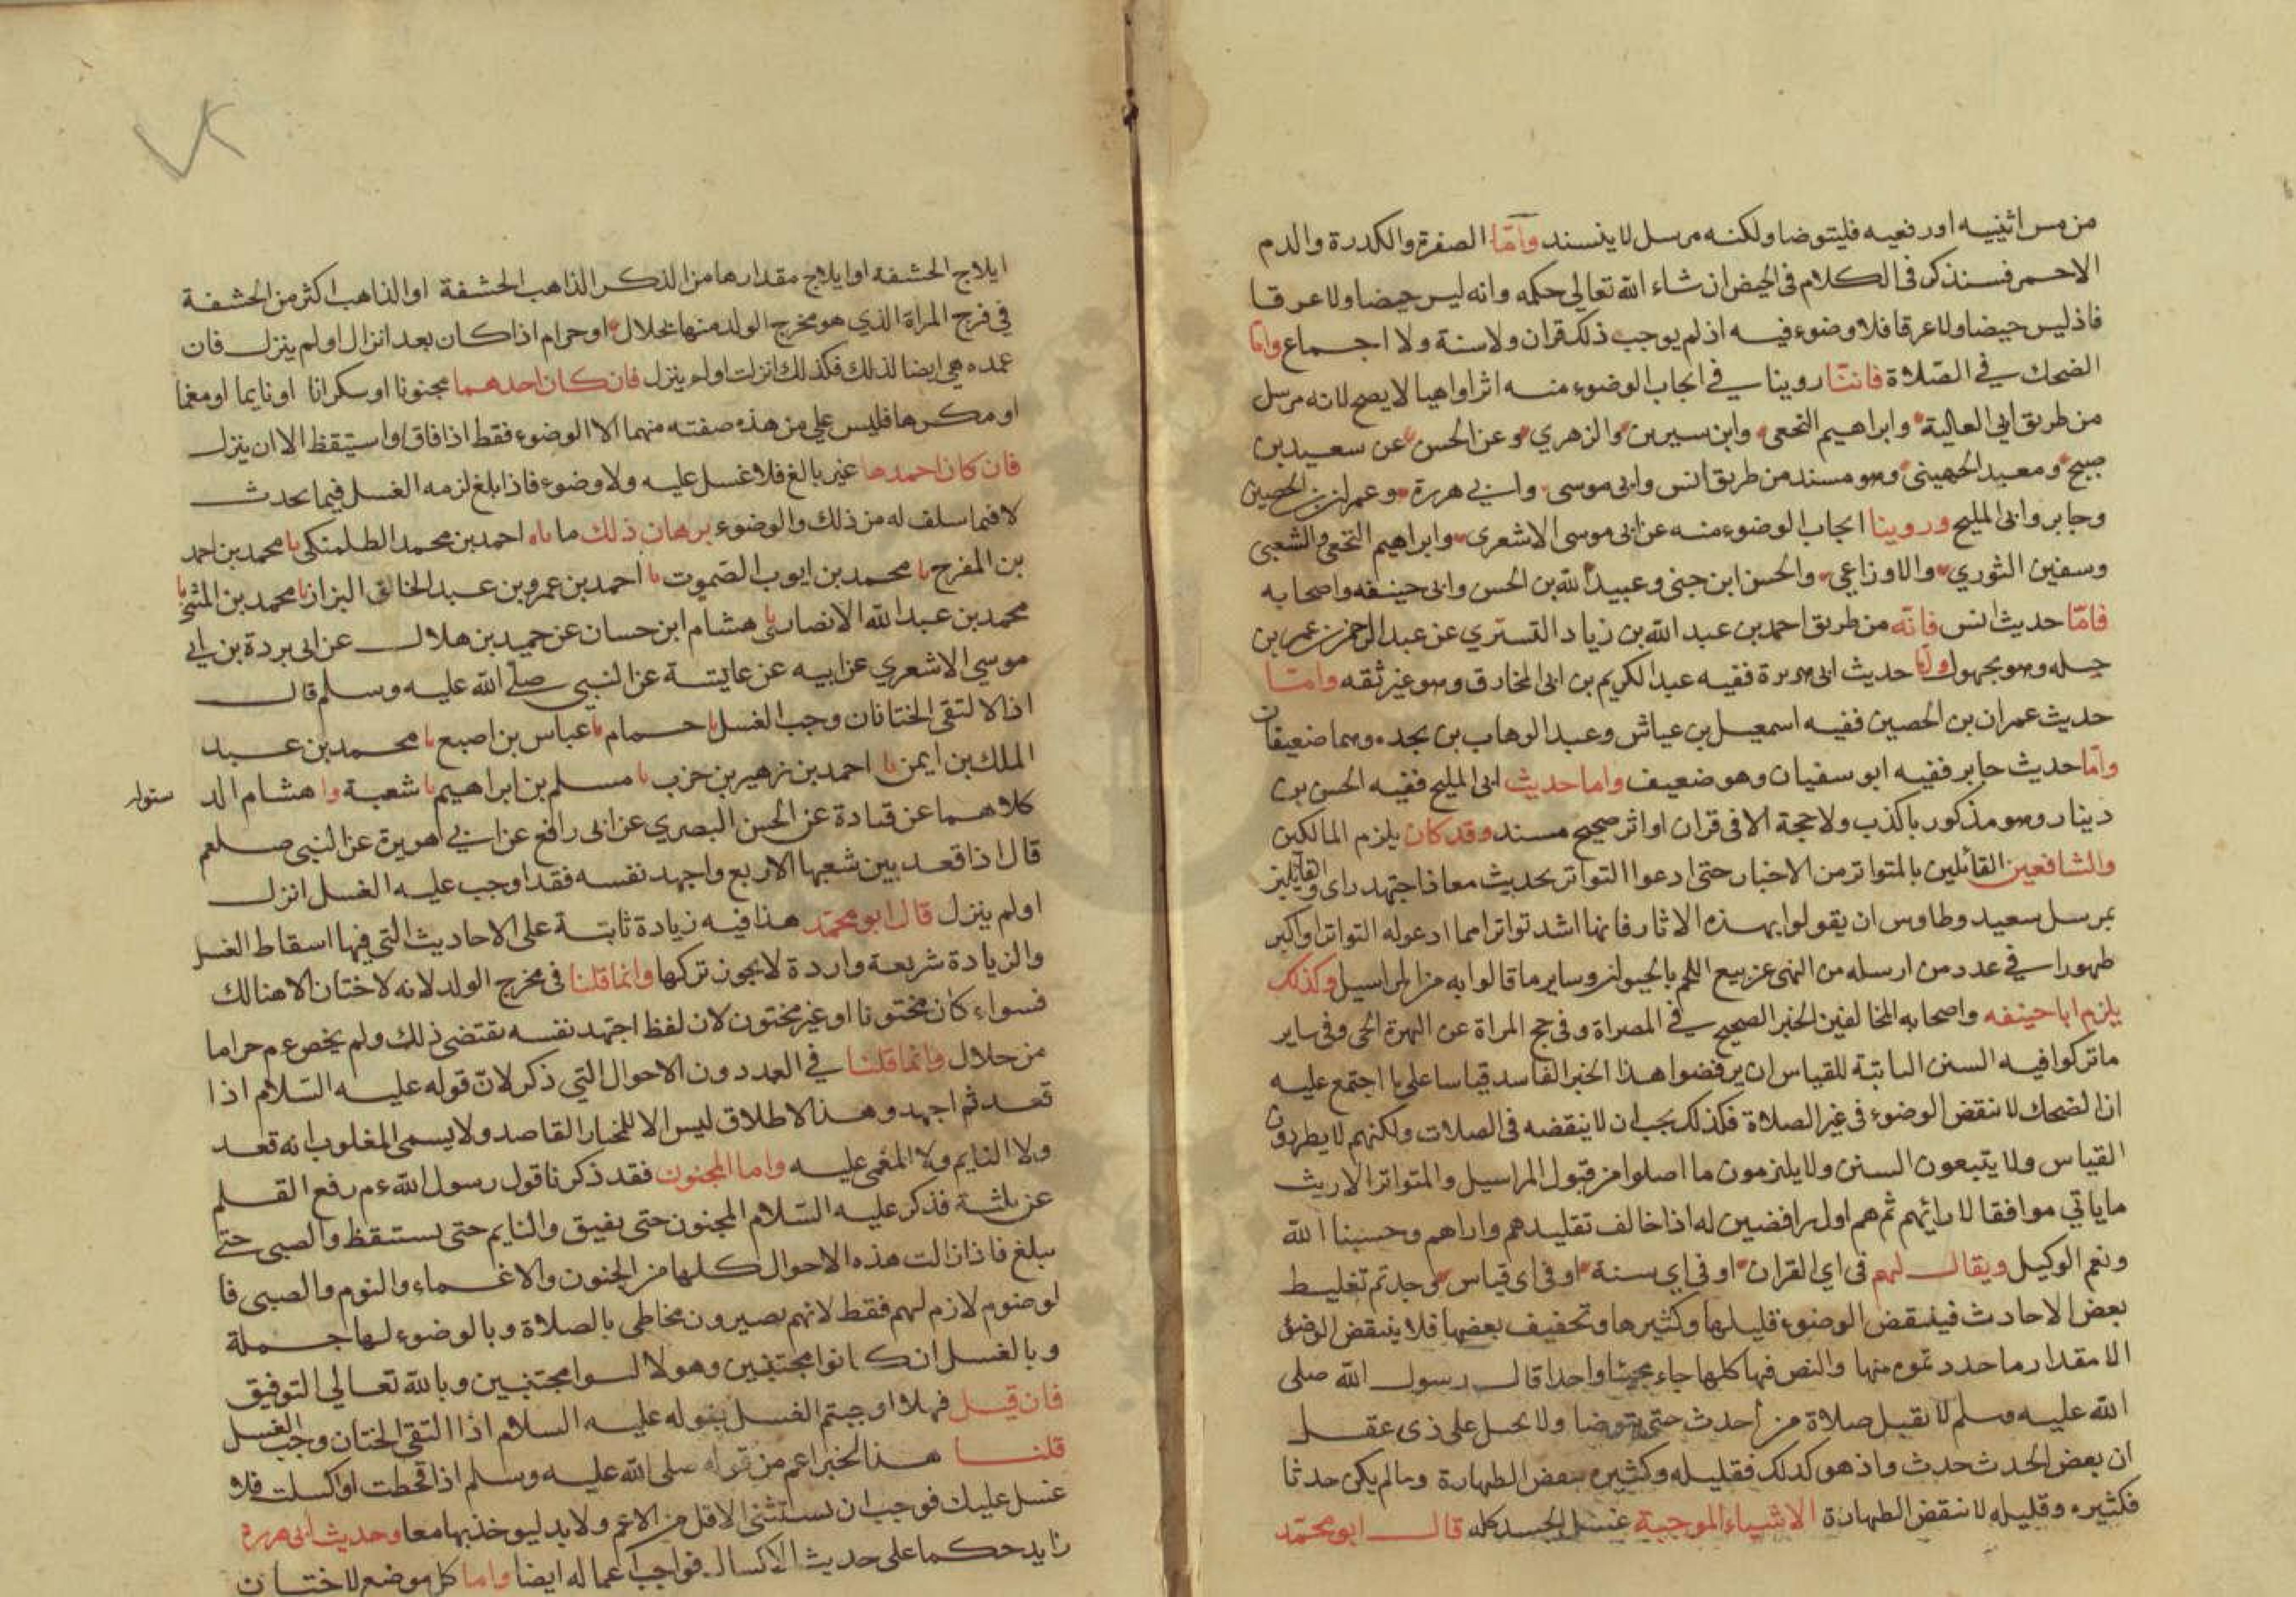 من مس انثييه او رفغيه فليتوضا ولكنه مرسل لا ينسند واما الصفرة والكدرة والدم
الاحمر فسنذكر في الكلام في الحيض ان شاء الله تعالى حكمه وانه ليس حيضا ولا عرقا
فاذ ليس حيضا ولا عرقا فلا وضوء فيه اذ لم يوجب ذلك قران ولا سنة ولا اجماع واما
الضحك في الصلاة فاننا روينا في ايجاب الوضوء منه اثرا واهيا لا يصح لانه مرسل
من طريق ابي العالية وابراهيم النخعى وابن سيرين والزهري وعن الحسن عن سعيد بن
صبيح ومعبد الجهيني وهو مسند من طريق انس وابى موسى وابي هررة وعمران بن الحصين
وجابر وابى المليح وروينا ايجاب الوضوء منه عن ابى موسى الاشعري وابراهيم النخعى والشعبى
وسفين الثوري والاوزاعي والحسن ابن حى وعبيد الله بن الحسن وابى حنيفه واصحابه
فامّا حديث انس فانّه من طريق احمد بن عبد الله بن زياد التستري عن عبد الرحمن بن عمر بن
جبله وهو مجهول واما حديث ابى هريرة ففيه عبد الكريم بن ابى المخارق وهو غير ثقه وامّا
حديث عمران بن الحصين ففيه اسمعيل بن عياش وعبد الوهاب بن نجده وهما ضعيفان
وامّا حديث جابر ففيه ابو سفيان وهو ضعيف واما حديث ابى المليح ففيه الحسن بن
دينار وهو مذكور باكذب ولا حجة الا في قران او اثر صحيح مسند وقد كان يلزم المالكين
والشافعين القائلين بالمتواتر من الاخبار حتى ادعوا التواتر بحديث معاذ اجتهد راى والقائلين
بمرسل سعيد وطاوس ان يقولوا بهذه الاثار فانها اشد تواترا مما ادعوله التواتر واكبر
ظهورا في عدد من ارسله من النهى عن بيع اللحم بالحيوان وساير ما قالوا به من المراسيل وكذلك
يلزم ابا حنيفه واصحابه المخالفين الخبر الصحيح في المصراة وفى حج المراة عن الهرة الحى وفى ساير
ما تركوا فيه السنن الثابتة للقياس ان يرفضوا هذا الخبر الفاسد قياسا على ما اجتمع عليه
ان الضحك لا ينقض الوضوء في غير الصلاة فكذلك يجب ان لا ينقضه في الصلات ولكنهم لا يطردون
القياس ولا يتبعون السنن ولا يلزمون ما اصلوا من قبول المراسيل والمتواتر الا ريث
ما ياتي موافقا لارائهم ثم هم اول رافضين له اذا خالف تقليدهم واراهم وحسبنا الله
ونعم الوكيل ويقال لهم في اي القران او في اي سنة او في اى قياس وجدتم تغليط
بعض الاحادث فينقض الوضوء قليلها وكثيرها وتخفيف بعضها فلا ينقض الوضؤ
الا مقدار ما حددتموه منها والنص فيها كلها جاء مجيئا واحدا قال رسول الله صلى
الله عليه وسلم لا تقبل صلاة من أحدث حتى يتوضا ولا يحل على ذى عقل
ان بعض الحدث حدث واذ هو كدلك فقليله وكثيره ينقض الطهارة ومالم يكن حدثا
فكثيره وقليله لا ينقض الطهارة الاشياء الموجبة غسل الجسد كله قال ابو محمّد
ايلاج الحشفة او ايلاج مقدارها من الذكر الذاهب الحشفة او الذاهب اكثر من الحشفة
في فرج المراة الذي هو مخرج الولد منها بحلال او حرام اذا كان بعد انزال او لم ينزل فان
عمده هي ايضا لذلك فكذلك انزلت او لم ينزل فان كان احدهما مجنونا او سكرانا او نايما او مغما
او مكرها فليس على من هذه صفته منهما الا الوضوء فقط اذا فاق او استيقظ الا ان ينزل
فان كان احمدها غير بالغ فلا غسل عليه ولا وضوء فاذا بلغ لزمه الغسل فيما يحدث
لا فيما سلف له من ذلك والوضوء برهان ذلك ما ناه احمد بن محمد الطلمنكى نا محمد بن احمد
بن المفرج نا محمد بن ايوب الصموت نا احمد بن عمرو بن عبد الخالق البزار نا محمد بن المثنى نا
محمد بن عبد الله الانصارى نا هشام ابن حسان عن حميد بن هلال عن ابى بردة بن ابي
موسي الاشعري عن ابيه عن عايشة عن النبي صلى الله عليه وسلم قال
اذا لا لتقى الختانان وجب الغسل نا حمام نا عباس بن اصبع نا محمد بن عبد
الملك بن ايمن نا احمد بن زهير بن حرب نا مسلم بن ابراهيم نا شعبة وا هشام الد
ستوار
كلاهما عن قتادة عن الحسن البصري عن ابى رافع عن ابي هويرة عن النبى صلعم
قال اذا قعد بين شعبها الاربع واجهد نفسه فقد اوجب عليه الغسل انزل
او لم ينزل قال ابو محمّد هذا فيه زيادة ثابتة على الاحاديث التي فيها اسقاط الغسل
والزيادة شريعة واردة لا يجوز تركها وانما قلنا في مخرج الولد لانه لا ختان الا هنالك
فسواء كان مختونا او غير مختون لان لفظ اجتهد نفسه يقتضى ذلك ولم يخص عم حراما
من حلال وانما قلنا في العمد دون الاحوال التي ذكر لانّ قوله عليه السّلام اذا
قعد ثم اجهد وهذا الاطلاق ليس الا للمختار القاصد ولا يسمى المغلوب انه قعد
ولا النايم ولا المغمى عليه واما المجنون فقد ذكرنا قول رسول الله عم رفع القلم
عن ثلثة فذكر عليه السّلام المجنون حتى يفيق والنايم حتى يستيقظ والصبى حتى
يبلغ فاذا زالت هذه الاحوال كلها من الجنون والاغماء والنوم والصبى فا
لوضوم لازم لهم فقط لانهم يصيرون مخاطى بالصلاة وبالوضوء لها جملة
وبالغسل ان كانوا مجتنبين وهولا ليسوا مجتنبين وبالله تعالي التوفيق
فان قيل فهلا اوجبتم الغسل بقوله عليه السلام اذا التقى الختان وجب الغسل
قلنا هذا الخبر اعم من قوله صلى الله عليه وسلم اذا قحطت او اكسلت فلا
غسل عليك فوجب ان يستثنى الاقل من الاعم ولا بد ليوخذ بها معا وحديث ابى هررة
زايد حكما على حديث الاكسال فواجب اعماله ايضا واما كل موضع لا ختان